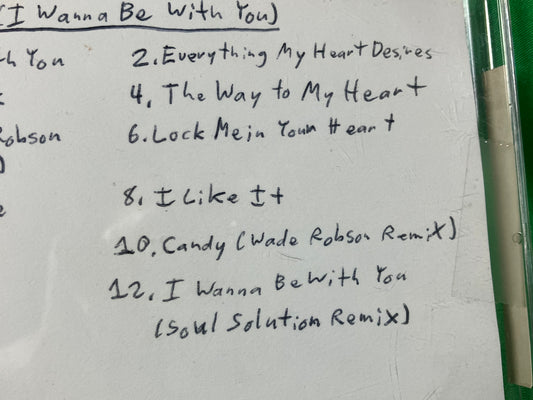 (I Wanna Be With You)
th You 2. Everything My Heart Desires
4. The Way to My Heart
Robson 6. Lock Me in Your Heart
)
e 8. I Like It
10. Candy (Wade Robson Remix)
12. I Wanna Be With You
(Soul Solution Remix)